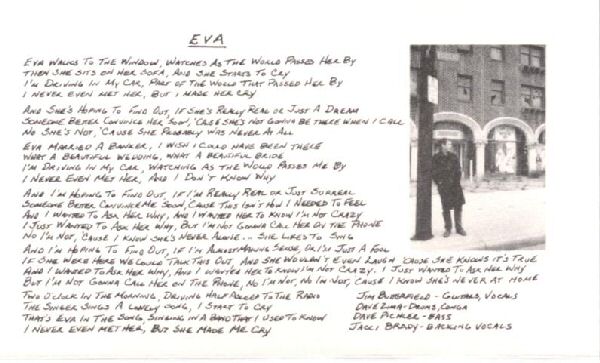 EVA
EVA WALKS TO THE WINDOW, WATCHES AS THE WORLD PASSED HER BY
THEN SHE SITS ON HER SOFA, AND SHE STARTS TO CRY
I'M DRIVING IN MY CAR, PART OF THE WORLD THAT PASSED HER BY
I NEVER EVEN MET HER, BUT I MADE HER CRY
AND SHE'S HOPING TO FIND OUT, IF SHE'S REALLY REAL OR JUST A DREAM
SOMEONE BETER CONVINCE HER SOON, 'CAUSE SHE'S NOT GONNA BE THERE WHEN I CALL
NO SHE'S NOT, 'CAUSE SHE PROBABLY WAS NEVER AT ALL
EVA MARRIED A BANKER, I WISH I COULD HAVE BEEN THERE
WHAT A BEAUTIFUL WEDDING, WHAT A BEAUTIFUL BRIDE
I'M DRIVING IN MY CAR, WATCHING AS THE WORLD PASSES ME BY
I NEVER EVEN MET HER, AND I DON'T KNOW WHY
AND I'M HOPING TO FIND OUT, IF I'M REALLY REAL OR JUST SURREAL
SOMEONE BETER CONVINCE ME SOON, 'CAUSE THIS ISN'T HOW I NEEDED TO FEEL
AND I WANTED TO ASK HER WHY, AND I WANTED HER TO KNOW I'M NOT CRAZY
I JUST WANTED TO ASK HER WHY, BUT I'M NOT GONNA CALL HER ON THE PHONE
NO I'M NOT, 'CAUSE I KNOW SHE'S NEVER ALONE... SHE LIKES TO SING
AND I'M HOPING TO FIND OUT, IF I'M MAKING SENSE, OR I'M JUST A FOOL
IF SHE WERE HERE WE COULD TALK THIS OUT, AND SHE WOULDN'T EVEN LAUGH 'CAUSE SHE KNOWS IT'S TRUE
AND I WANTED TO ASK HER WHY, AND I WANTED HER TO KNOW I'M NOT CRAZY. I JUST WANTED TO ASK HER WHY
BUT I'M NOT GONNA CALL HER ON THE PHONE, NO I'M NOT, NO I'M NOT, 'CAUSE I KNOW SHE'S NEVER AT HOME
TWO O'CLOCK IN THE MORNING, DRIVING HALF POLICED TO THE RADIO
THE SINGER SINGS A LOVELY SONG, I START TO CRY
THAT'S EVA IN THE SONG, SINGING IN A BAND THAT I USED TO KNOW
I NEVER EVEN MET HER, BUT SHE MADE ME CRY
JIM BUTTERFIELD - GUITARS, VOCALS
DAVE ZIMA - DRUMS, CONGA
DAVE PICHLER - BASS
JACCI BRADY - BACKING VOCALS